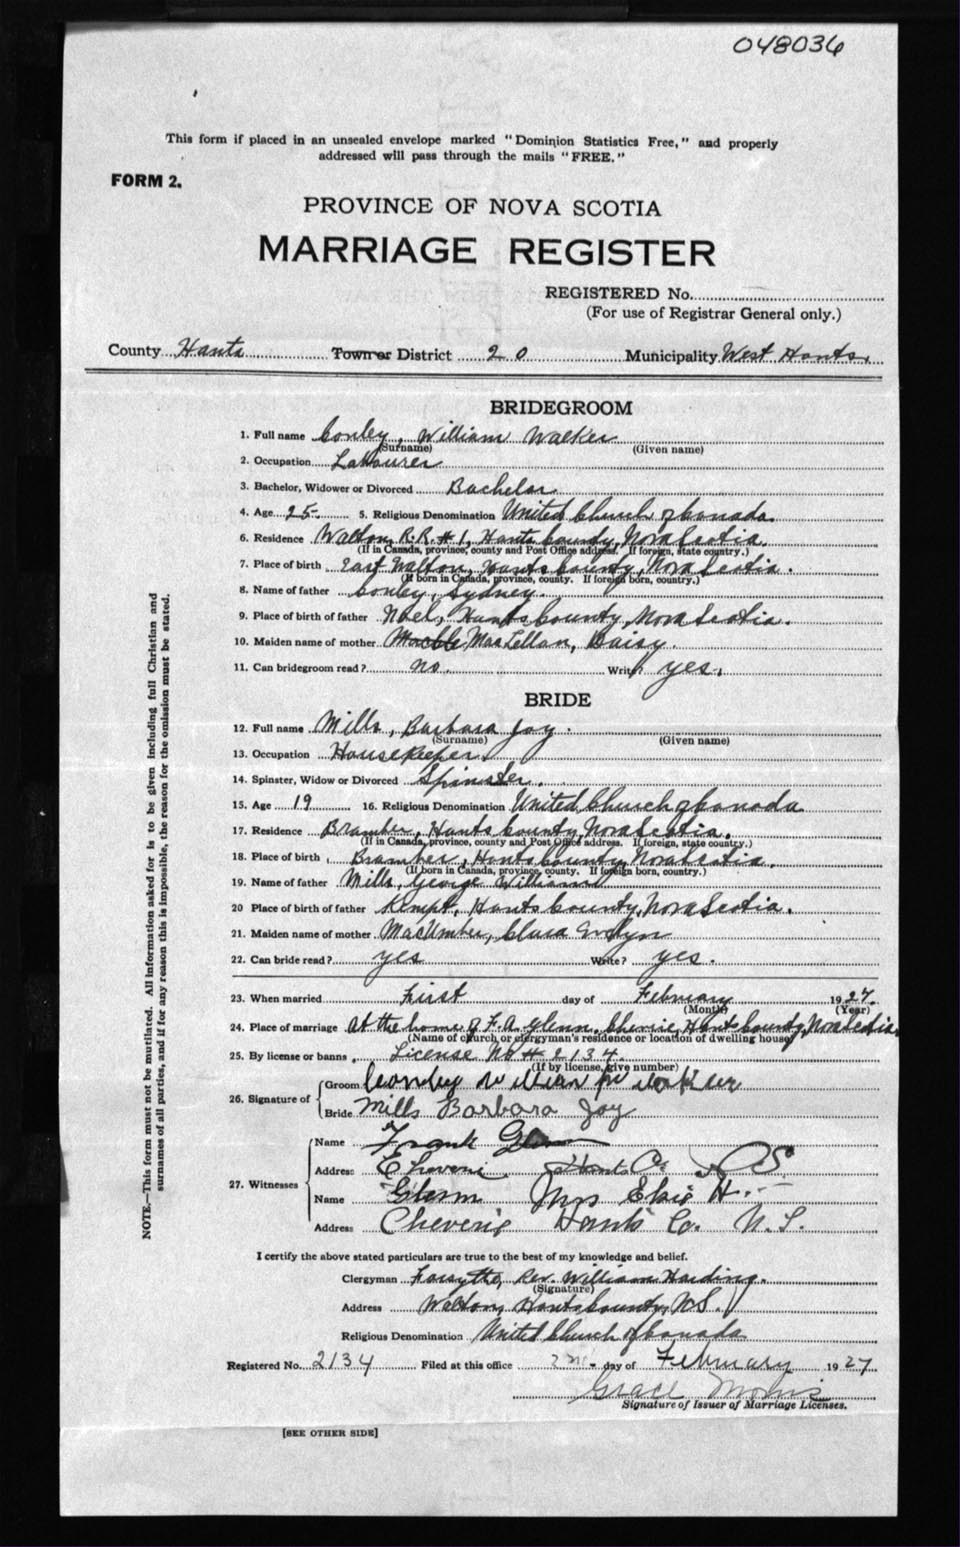 048036
This form if placed in an unsealed envelope marked "Dominion Statistics Free," and properly
addressed will pass through the mails "FREE."
FORM 2.
PROVINCE OF NOVA SCOTIA
MARRIAGE REGISTER
REGISTERED No.
(For use of Registrar General only.)
County Hants Town or District 20 Municipality West Hants.
BRIDEGROOM
1. Full name Conley, William Walker
(Surname) (Given name)
2. Occupation Labourer
3. Bachelor, Widower or Divorced Bachelor
4. Age 25- 5. Religious Denomination United Church of Canada
6. Residence Walton, R.R.#1, Hants County, Nova Scotia.
(If in Canada, province, county and Post Office address. If foreign, state country.)
7. Place of birth East Walton, Hants County, Nova Scotia.
(If born in Canada, province, county. If foreign born, country.)
8. Name of father Conley, Sydney.
9. Place of birth of father Noel, Hants County, Nova Scotia.
10. Maiden name of mother MacLellan, Daisy.
11. Can bridegroom read? no. Write? yes.
BRIDE
12. Full name Mills, Barbara Joy.
(Surname) (Given name)
13. Occupation Housekeeper.
14. Spinster, Widow or Divorced Spinster.
15. Age 19 16. Religious Denomination United Church of Canada
17. Residence Bramber, Hants County, Nova Scotia.
(If in Canada, province, county and Post Office address. If foreign, state country.)
18. Place of birth Bramber, Hants County, Nova Scotia.
(If born in Canada, province, county. If foreign born, country.)
19. Name of father Mills, George William
20 Place of birth of father Kempt, Hants County, Nova Scotia.
21. Maiden name of mother MacUmber, Clara Evelyn
22. Can bride read? yes Write? yes.
23. When married First day of February 1927.
(Month) (Year)
24. Place of marriage At the home of F. A. Glenn, Cheverie, Hants County, Nova Scotia
(Name of church or clergyman's residence or location of dwelling house)
25. By license or banns License No # 2134.
(If by license, give number)
26. Signature of
Groom Conley William Walker
Bride Mills Barbara Joy
27. Witnesses
Name Frank Glenn
Address Cheverie Hants Co. N S
Name Glenn Mrs Elsie H.
Address Cheverie Hants Co. N. S.
I certify the above stated particulars are true to the best of my knowledge and belief.
Clergyman Forsythe, Rev. William Harding.
(Signature)
Address Walton, Hants County, N.S.
Religious Denomination United Church of Canada
Registered No. 2134 Filed at this office 2nd - day of February 1927
Grace
Signature of Issuer of Marriage Licenses.
[SEE OTHER SIDE]
NOTE.—This form must not be mutilated. All information asked for is to be given including full Christian and
surnames of all parties, and if for any reason this is impossible, the reason for the omission must be stated.